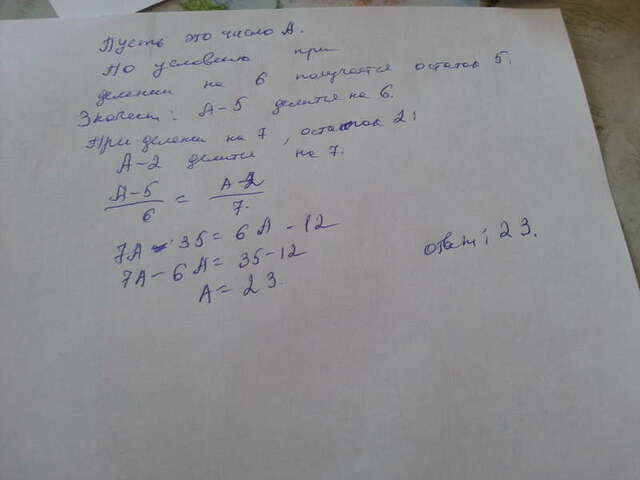 Пусть это число А.
По условию при
делении на 6 получается остаток 5;
Значит: А-5 делится на 6.
При делени на 7, остаток 2;
А-2 делится на 7.
А-5/6 = А-2/7.
7А - 35 = 6А - 12
7А - 6А = 35-12
А = 23.
ответ: 23.